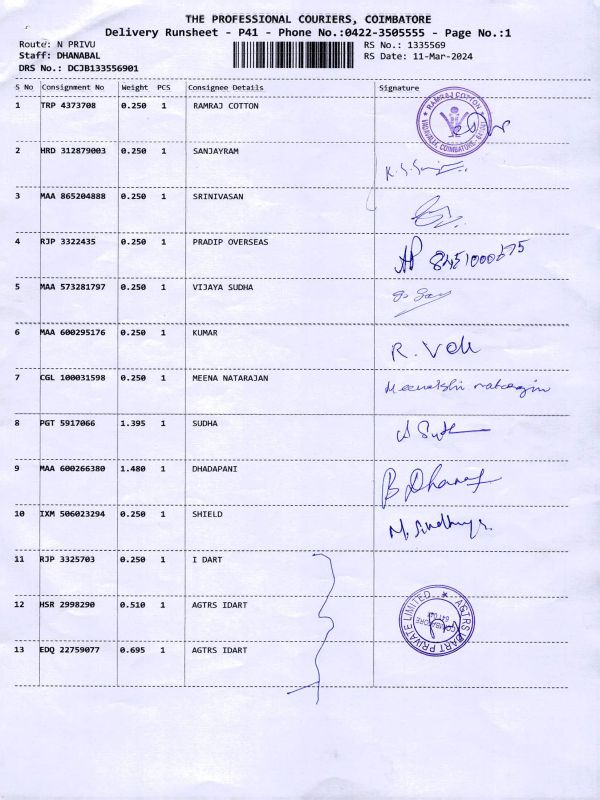 THE PROFESSIONAL COURIERS, COIMBATORE
Delivery Runsheet - P41 - Phone No.:0422-3505555 - Page No.:1
Route: N PRIVU RS No.: 1335569
Staff: DHANABAL RS Date: 11-Mar-2024
DRS No.: DCJB133556901
S No Consignment No Weight PCS Consignee Details Signature
1 TRP 4373708 0.250 1 RAMRAJ COTTON
RAMRAJ COTTON
2 HRD 312879003 0.250 1 SANJAYRAM
3 MAA 865204888 0.250 1 SRINIVASAN
4 RJP 3322435 0.250 1 PRADIP OVERSEAS
5 MAA 573281797 0.250 1 VIJAYA SUDHA
6 MAA 600295176 0.250 1 KUMAR
R.
7 CGL 100031598 0.250 1 MEENA NATARAJAN
8 PGT 5917066 1.395 1 SUDHA
9 MAA 600266380 1.480 1 DHADAPANI
10 IXM 506023294 0.250 1 SHIELD
11 RJP 3325703 0.250 1 I DART
12 HSR 2998290 0.510 1 AGTRS IDART
AGTRS IDART PRIVATE LIMITED
COIMBATORE
13 EDQ 22759077 0.695 1 AGTRS IDART